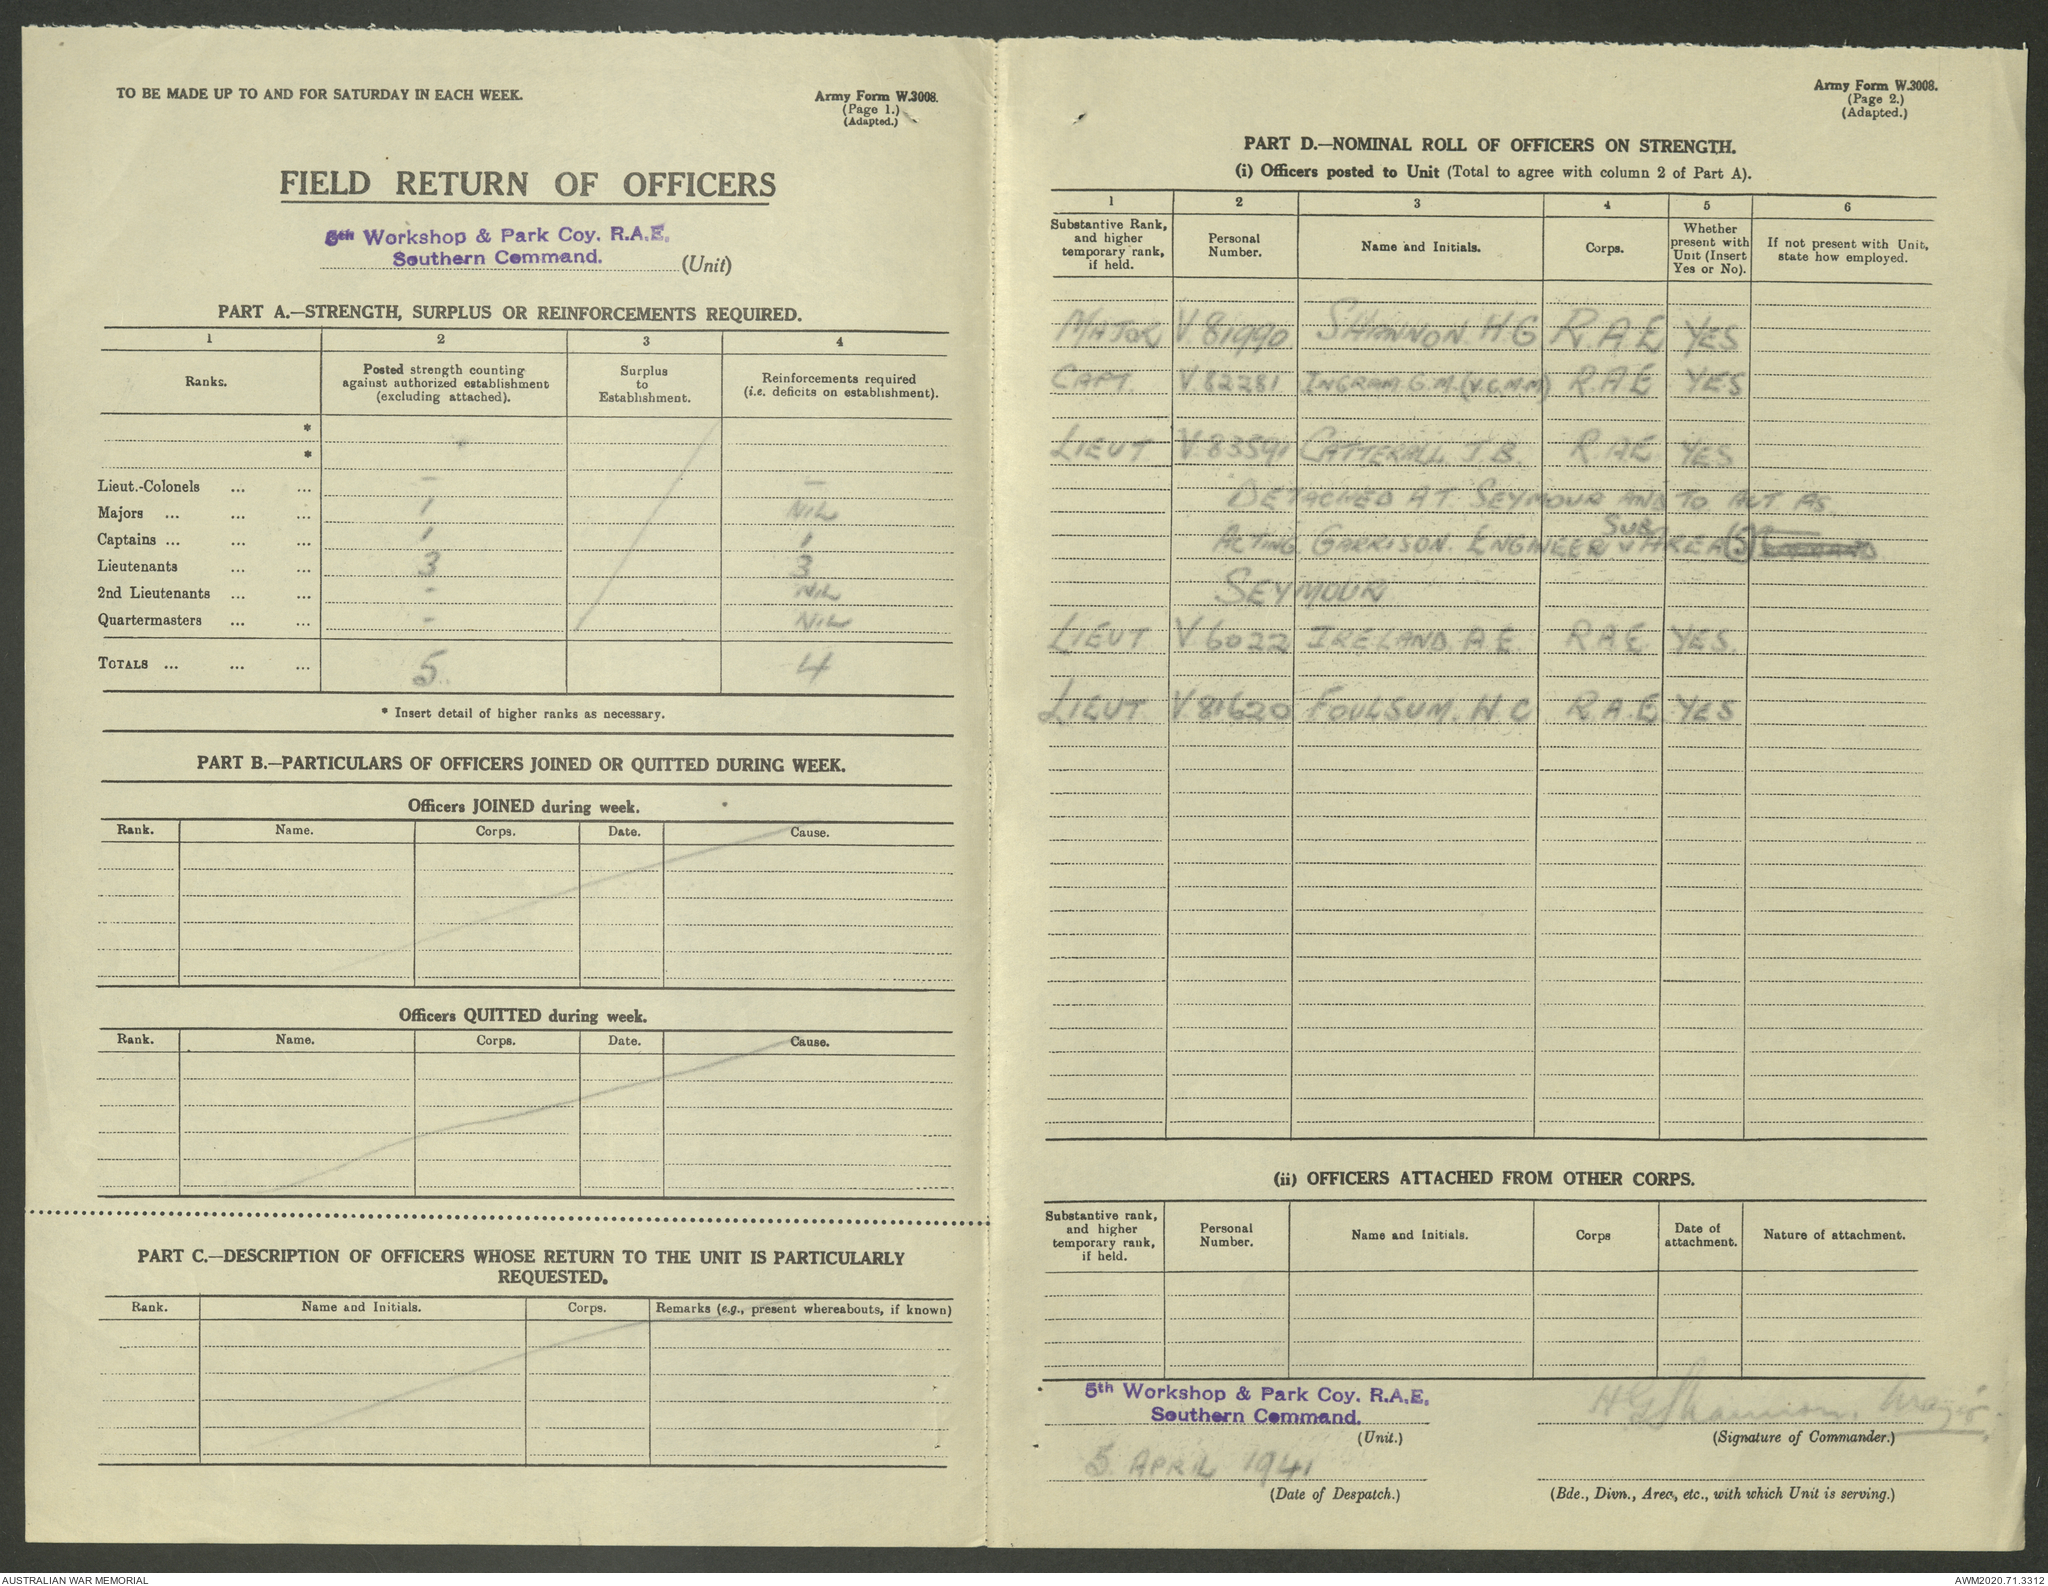 TO BE MADE UP TO AND FOR SATURDAY IN EACH WEEK.
Army Form W.3008.
(Page 1.)
(Adapted.)
FIELD RETURN OF OFFICERS
5th Workshop & Park Coy. R.A.E.
Southern Command.
(Unit)
PART A.—STRENGTH, SURPLUS OR REINFORCEMENTS REQUIRED.
1 2 3 4
Ranks. Posted strength counting against authorized establishment (excluding attached). Surplus to Establishment. Reinforcements required (i.e. deficits on establishment).
*
*
Lieut.-Colonels ... ... — —
Majors ... ... ... 1 NIL
Captains ... ... ... 1 1
Lieutenants ... ... 3 3
2nd Lieutenants ... ... - NIL
Quartermasters ... ... - NIL
TOTALS ... ... ... 5 4
* Insert detail of higher ranks as necessary.
PART B.—PARTICULARS OF OFFICERS JOINED OR QUITTED DURING WEEK.
Officers JOINED during week.
Rank. Name. Corps. Date. Cause.
Officers QUITTED during week.
Rank. Name. Corps. Date. Cause.
PART C.—DESCRIPTION OF OFFICERS WHOSE RETURN TO THE UNIT IS PARTICULARLY
REQUESTED.
Rank. Name and Initials. Corps. Remarks (e.g., present whereabouts, if known)
Army Form W.3008.
(Page 2.)
(Adapted.)
PART D.—NOMINAL ROLL OF OFFICERS ON STRENGTH.
(i) Officers posted to Unit (Total to agree with column 2 of Part A).
1 2 3 4 5 6
Substantive Rank, and higher temporary rank, if held. Personal Number. Name and Initials. Corps. Whether present with Unit (Insert Yes or No). If not present with Unit, state how employed.
MAJOR V.81990 SHANNON H.G R.A.E YES
CAPT. V.82281 INGRAM G.M. (V.G.M.M) R.A.E YES
LIEUT V.83591 CATTERALL J.B. R.A.E YES
DETACHED AT SEYMOUR AND TO ACT AS
ACTING GARRISON ENGINEER SUB AREA (5)
SEYMOUR
LIEUT V.6022 IRELAND A.E. R.A.E. YES.
LIEUT V.81620 FOULSUM. H.C R.A.E YES
(ii) OFFICERS ATTACHED FROM OTHER CORPS.
Substantive rank, and higher temporary rank, if held. Personal Number. Name and Initials. Corps Date of attachment. Nature of attachment.
5th Workshop & Park Coy. R.A.E.
Southern Command.
(Unit.)
HG Shannon. Major.
(Signature of Commander.)
5 APRIL 1941
(Date of Despatch.)
(Bde., Divn., Area, etc., with which Unit is serving.)
AUSTRALIAN WAR MEMORIAL
AWM2020.71.3312